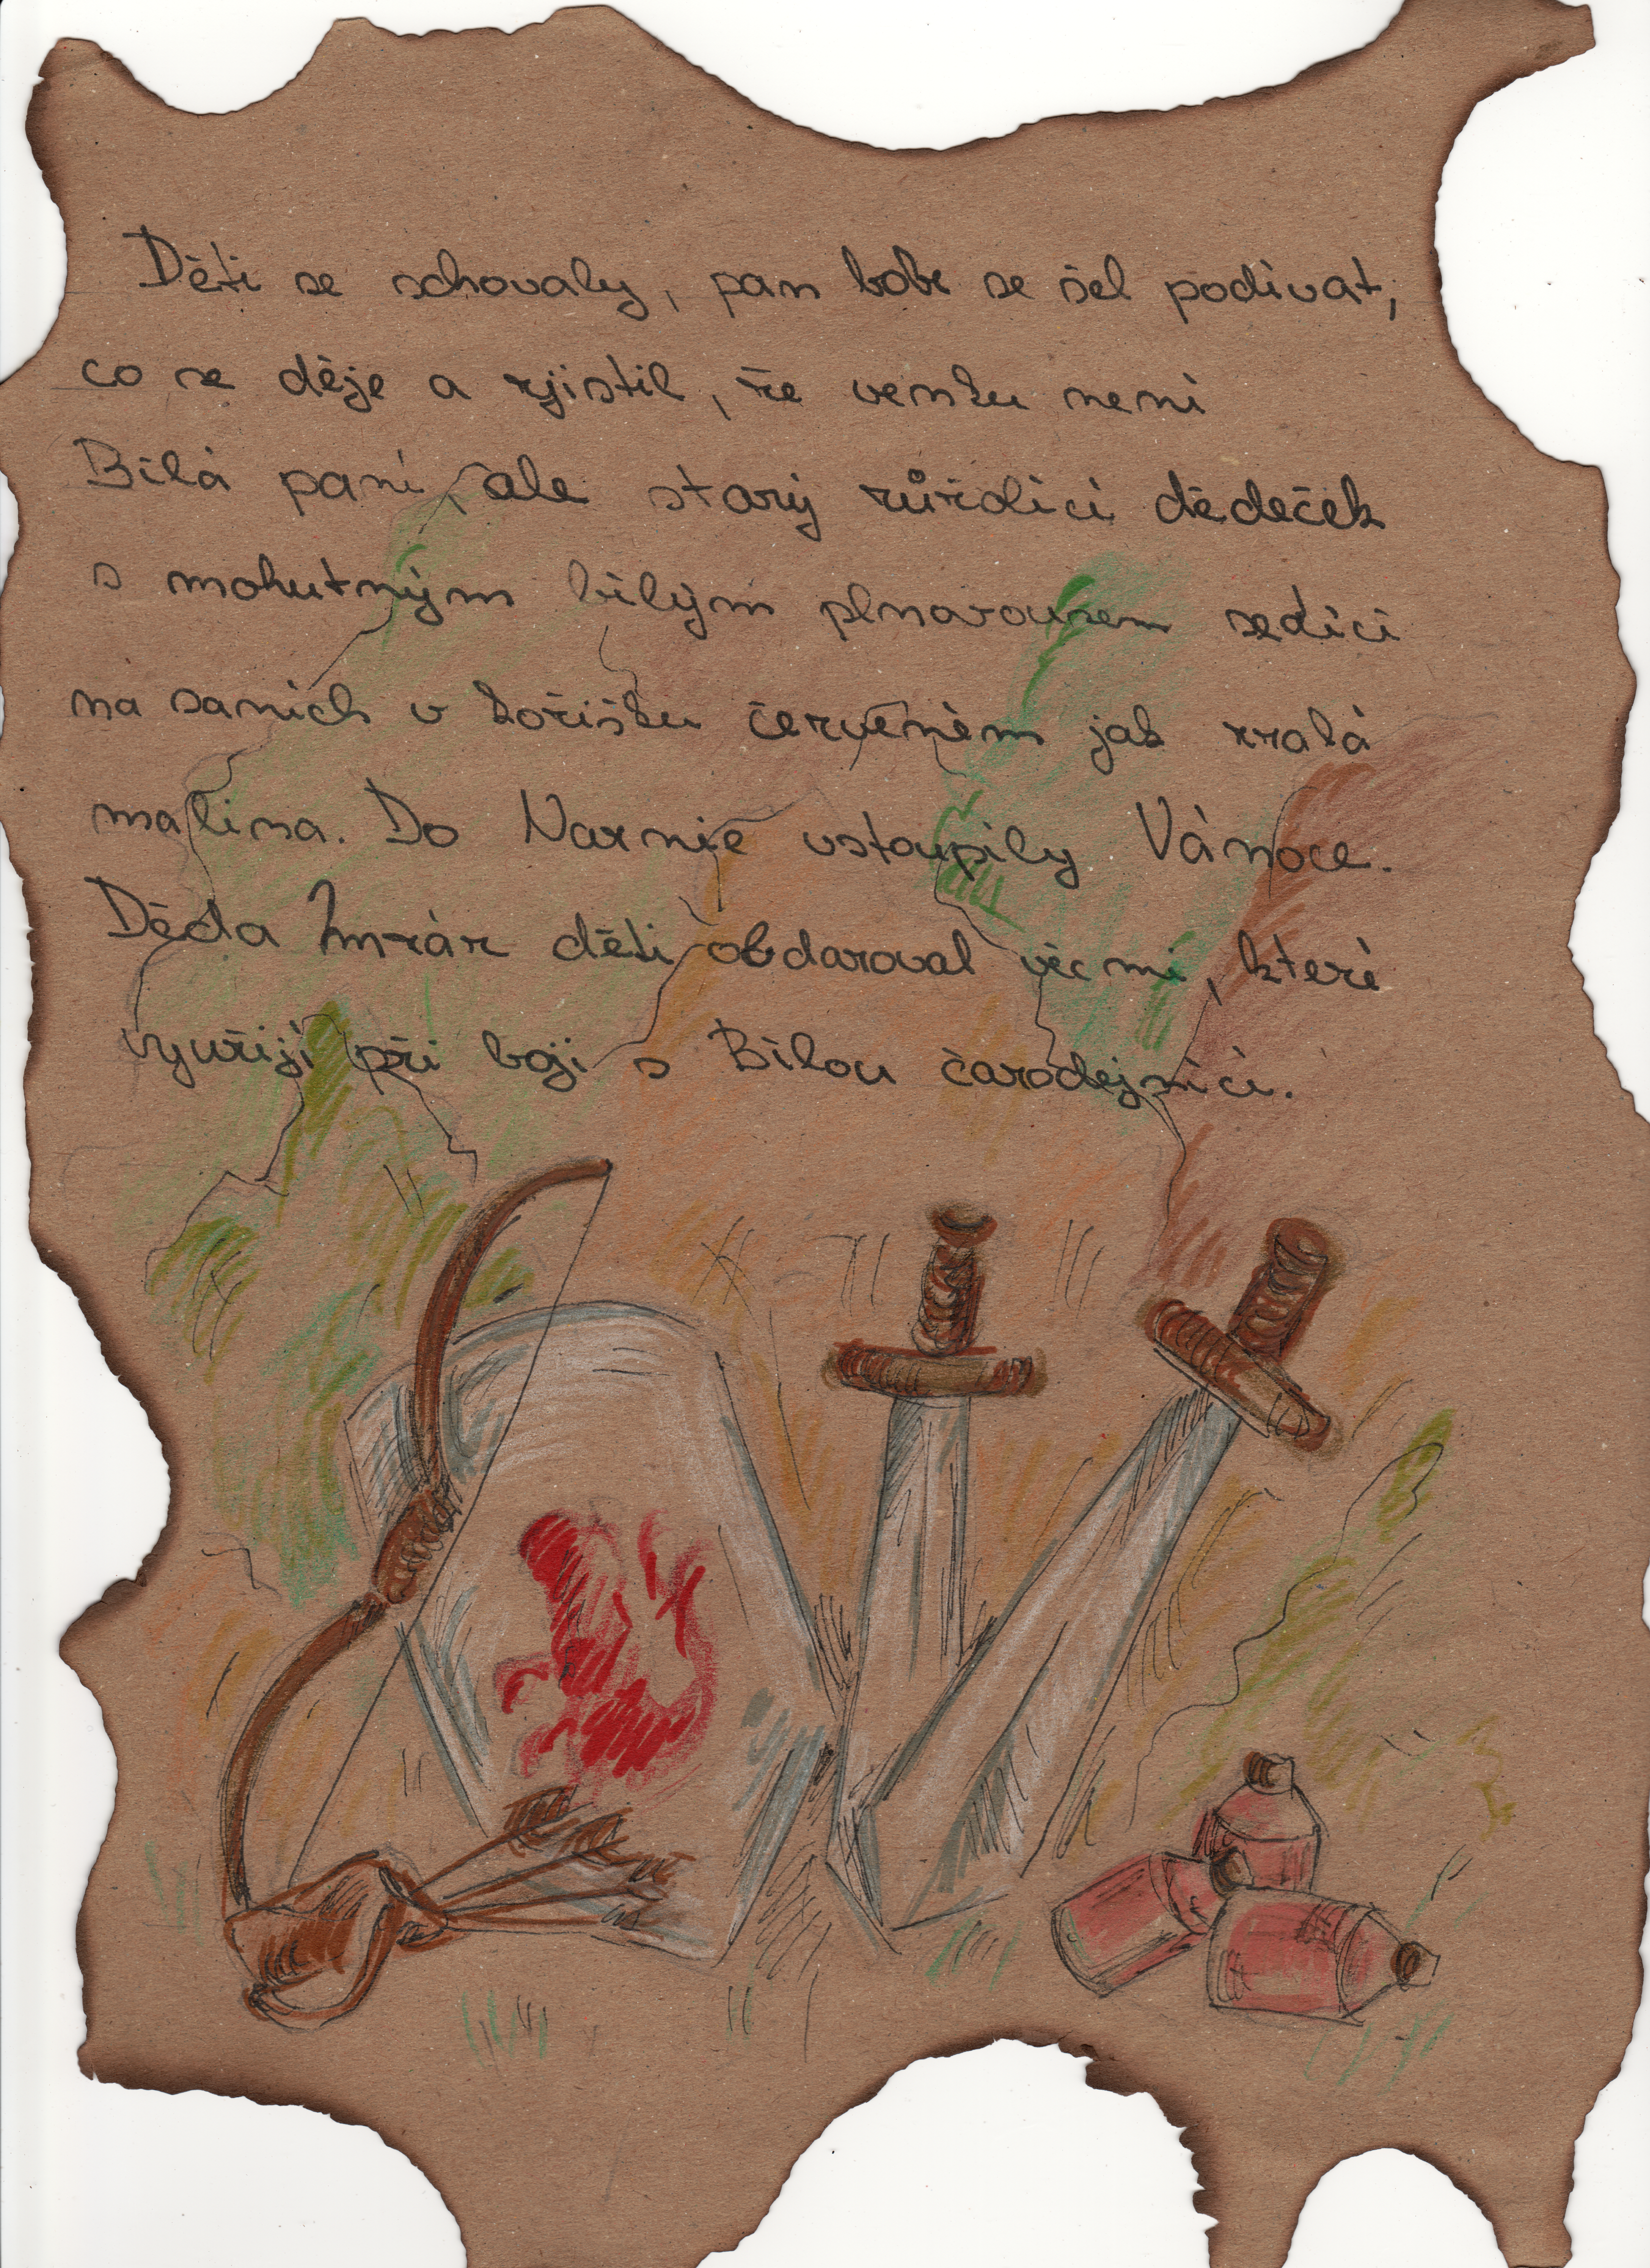 Děti se schovaly, pan bobr se šel podívat,
co se děje a zjistil, že venku není
Bílá paní, ale starý růžolící dědeček
s mohutným bílým plnovousem sedící
na saních v kožíšku červeném jak zralá
malina. Do Narnie vstoupily Vánoce.
Děda Mráz děti obdaroval věcmi, které
využijí při boji s Bílou čarodejnicí.